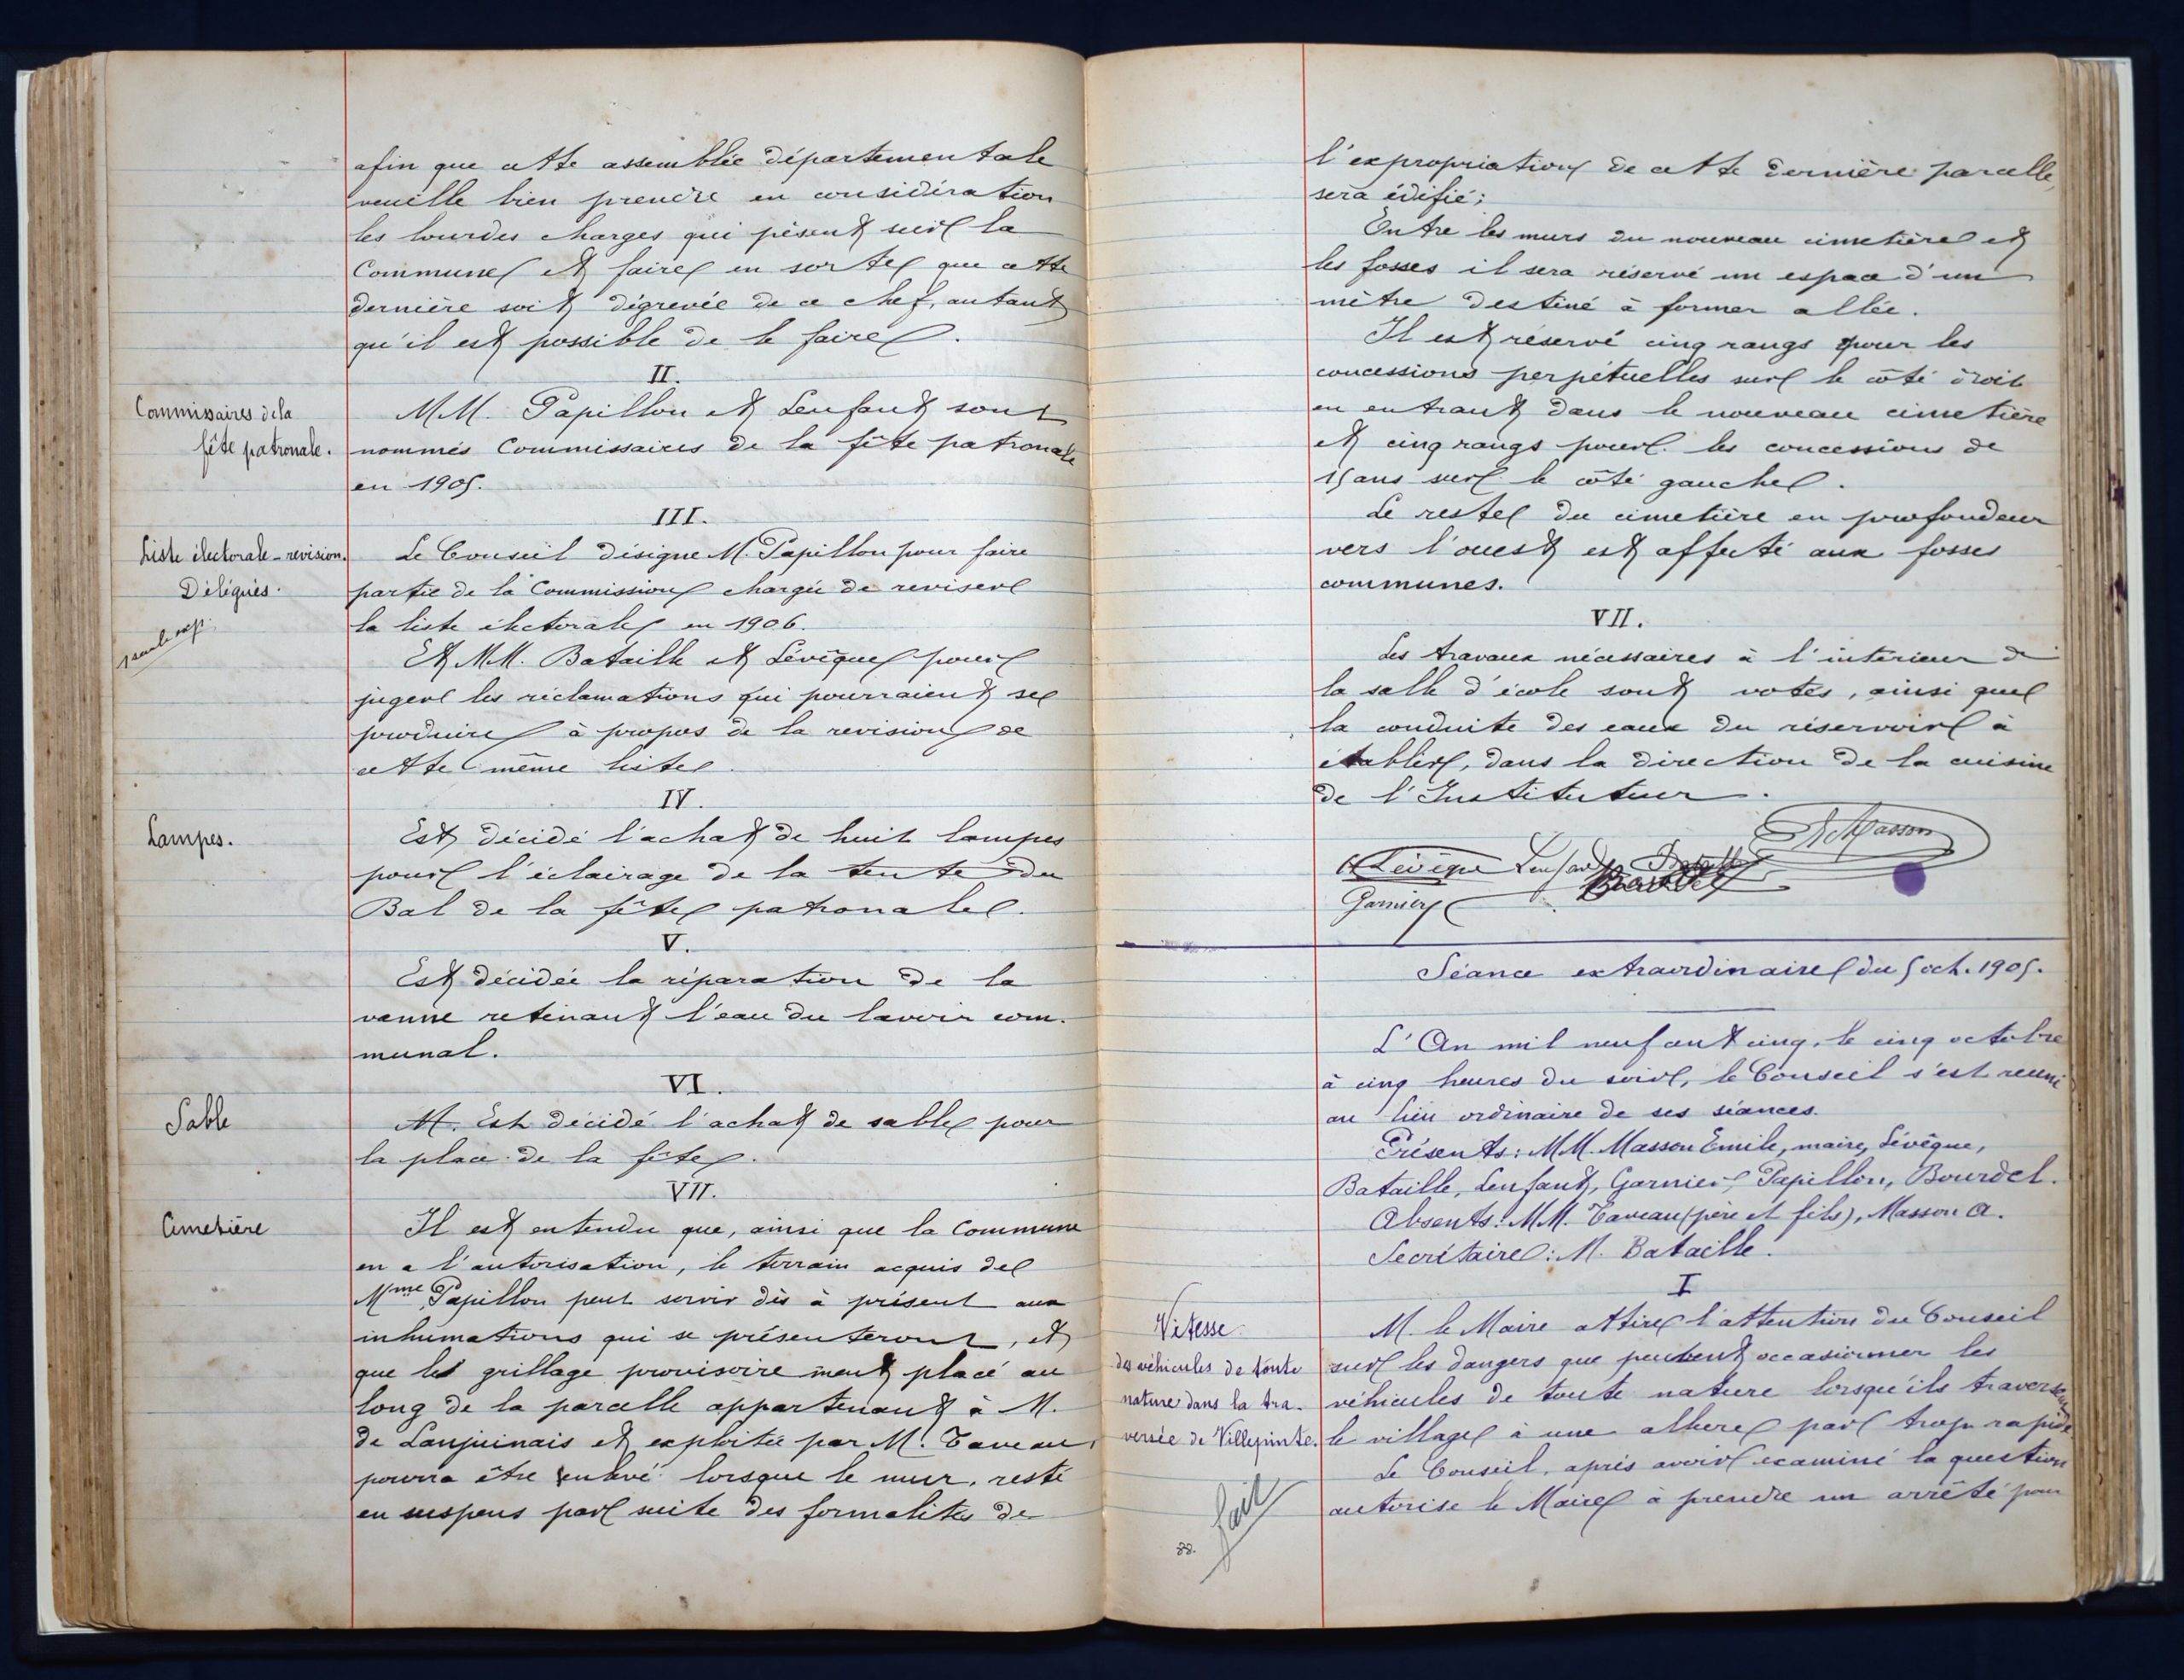 afin que cette assemblée départementale
veuille bien prendre en considération
les lourdes charges qui pèsent sur la
Commune et faire en sorte que cette
dernière soit dégrevée de ce chef, autant
qu'il est possible de le faire.
II.
Commissaires de la
fête patronale.
MM. Papillon et Lenfant sont
nommés Commissaires de la fête patronale
en 1905.
III.
Liste électorale - revision.
Délégués.
Le Conseil désigne M. Papillon pour faire
partie de la Commission chargée de reviser
la liste électorale en 1906.
Et MM. Bataille et Lévêque pour
juger les réclamations qui pourraient se
produire à propos de la revision de
cette même liste.
IV.
Lampes.
Est décidé l'achat de huit lampes
pour l'éclairage de la tente du
Bal de la fête patronale.
V.
Est décidée la réparation de la
vanne retenant l'eau du lavoir com-
munal.
VI.
Sable
M. Est décidé l'achat de sable pour
la place de la fête.
VII.
Cimetière
Il est entendu que, ainsi que la Commune
en a l'autorisation, le terrain acquis de
Mme Papillon peut servir dès à présent aux
inhumations qui se présenteront, et
que le grillage provisoirement placé au
long de la parcelle appartenant à M.
de Lanjuinais et exploitée par M. Taveau,
pourra être enlevé lorsque le mur, resté
en suspens par suite des formalités de
l'expropriation de cette dernière parcelle,
sera édifié;
Entre les murs du nouveau cimetière et
les fosses il sera réservé un espace d'un
mètre destiné à former allée.
Il est réservé cinq rangs pour les
concessions perpétuelles sur le côté droit
en entrant dans le nouveau cimetière
et cinq rangs pour les concessions de
15 ans sur le côté gauche.
Le reste du cimetière en profondeur
vers l'ouest est affecté aux fosses
communes.
VII.
Les travaux nécessaires à l'intérieur de
la salle d'école sont votés, ainsi que
la conduite des eaux du réservoir à
établir, dans la direction de la cuisine
de l'Instituteur.
Masson
Lévêque Lenfant
Garnier
Séance extraordinaire du 5 oct. 1905.
L'An mil neuf cent cinq, le cinq octobre
à cinq heures du soir, le Conseil s'est réuni
au lieu ordinaire de ses séances.
Présents: MM. Masson Emile, maire, Lévêque,
Bataille, Lenfant, Garnier, Papillon, Bourdel.
Absents: MM. Taveau (père et fils), Masson A.
Secrétaire: M. Bataille.
I
Vitesse
des véhicules de toute
nature dans la tra-
versée de Villepinte.
fait
88.
M. le Maire attire l'attention du Conseil
sur les dangers que peuvent occasionner les
véhicules de toute nature lorsqu'ils traversent
le village à une allure par trop rapide
Le Conseil, après avoir examiné la question
autorise le Maire à prendre un arrêté pour